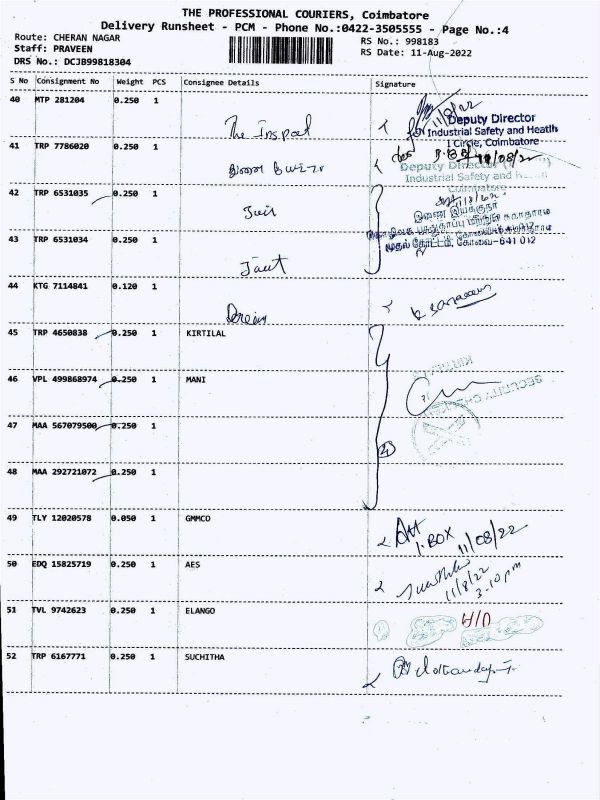 THE PROFESSIONAL COURIERS, Coimbatore
Delivery Runsheet - PCM - Phone No.:0422-3505555 - Page No.:4
Route: CHERAN NAGAR
RS No.: 998183
Staff: PRAVEEN
RS Date: 11-Aug-2022
DRS No.: DCJB99818304
S No Consignment No Weight PCS Consignee Details Signature
40 MTP 281204 0.250 1
The Inspool
11/8/22
Deputy Director
Industrial Safety and Health
I Circle, Coimbatore
41 TRP 7786020 0.250 1
11/08/22
Deputy Director
Industrial Safety and
Coimbatore
42 TRP 6531035 0.250 1
11/8/22
இணை இயக்குநர்
முதல் கோட்டம், கோவை-641 012
43 TRP 6531034 0.250 1
44 KTG 7114841 0.120 1
45 TRP 4650838 0.250 1 KIRTILAL
46 VPL 499868974 0.250 1 MANI
47 MAA 567079500 0.250 1
4
48 MAA 292721072 0.250 1
49 TLY 12020578 0.050 1 GMMCO
1. BOX 11/08/22
50 EDQ 15825719 0.250 1 AES
11/8/22
3-10 pm
51 TVL 9742623 0.250 1 ELANGO
H/D
52 TRP 6167771 0.250 1 SUCHITHA